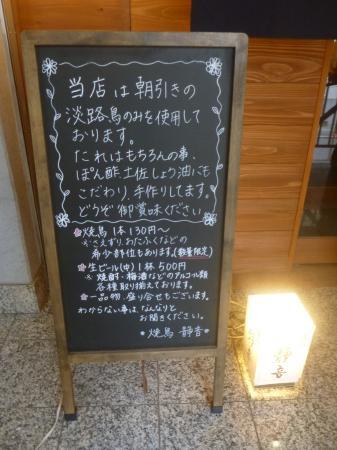 当店は朝引きの
淡路鳥のみを使用して
おります。
たれはもちろんの事、
ぽん酢、土佐しょう油にも
こだわり、手作りしてます。
どうぞ御賞味ください
焼鳥 1本130円〜
※さえずり、おたふくなどの
希少部位もあります。(数量限定)
生ビール(中)1杯500円
※焼酎・梅酒などのアルコール類
各種取り揃えております。
一品物、盛り合せもございます。
わからない事は、なんなりと
お聞きください。
焼鳥 静音
静音